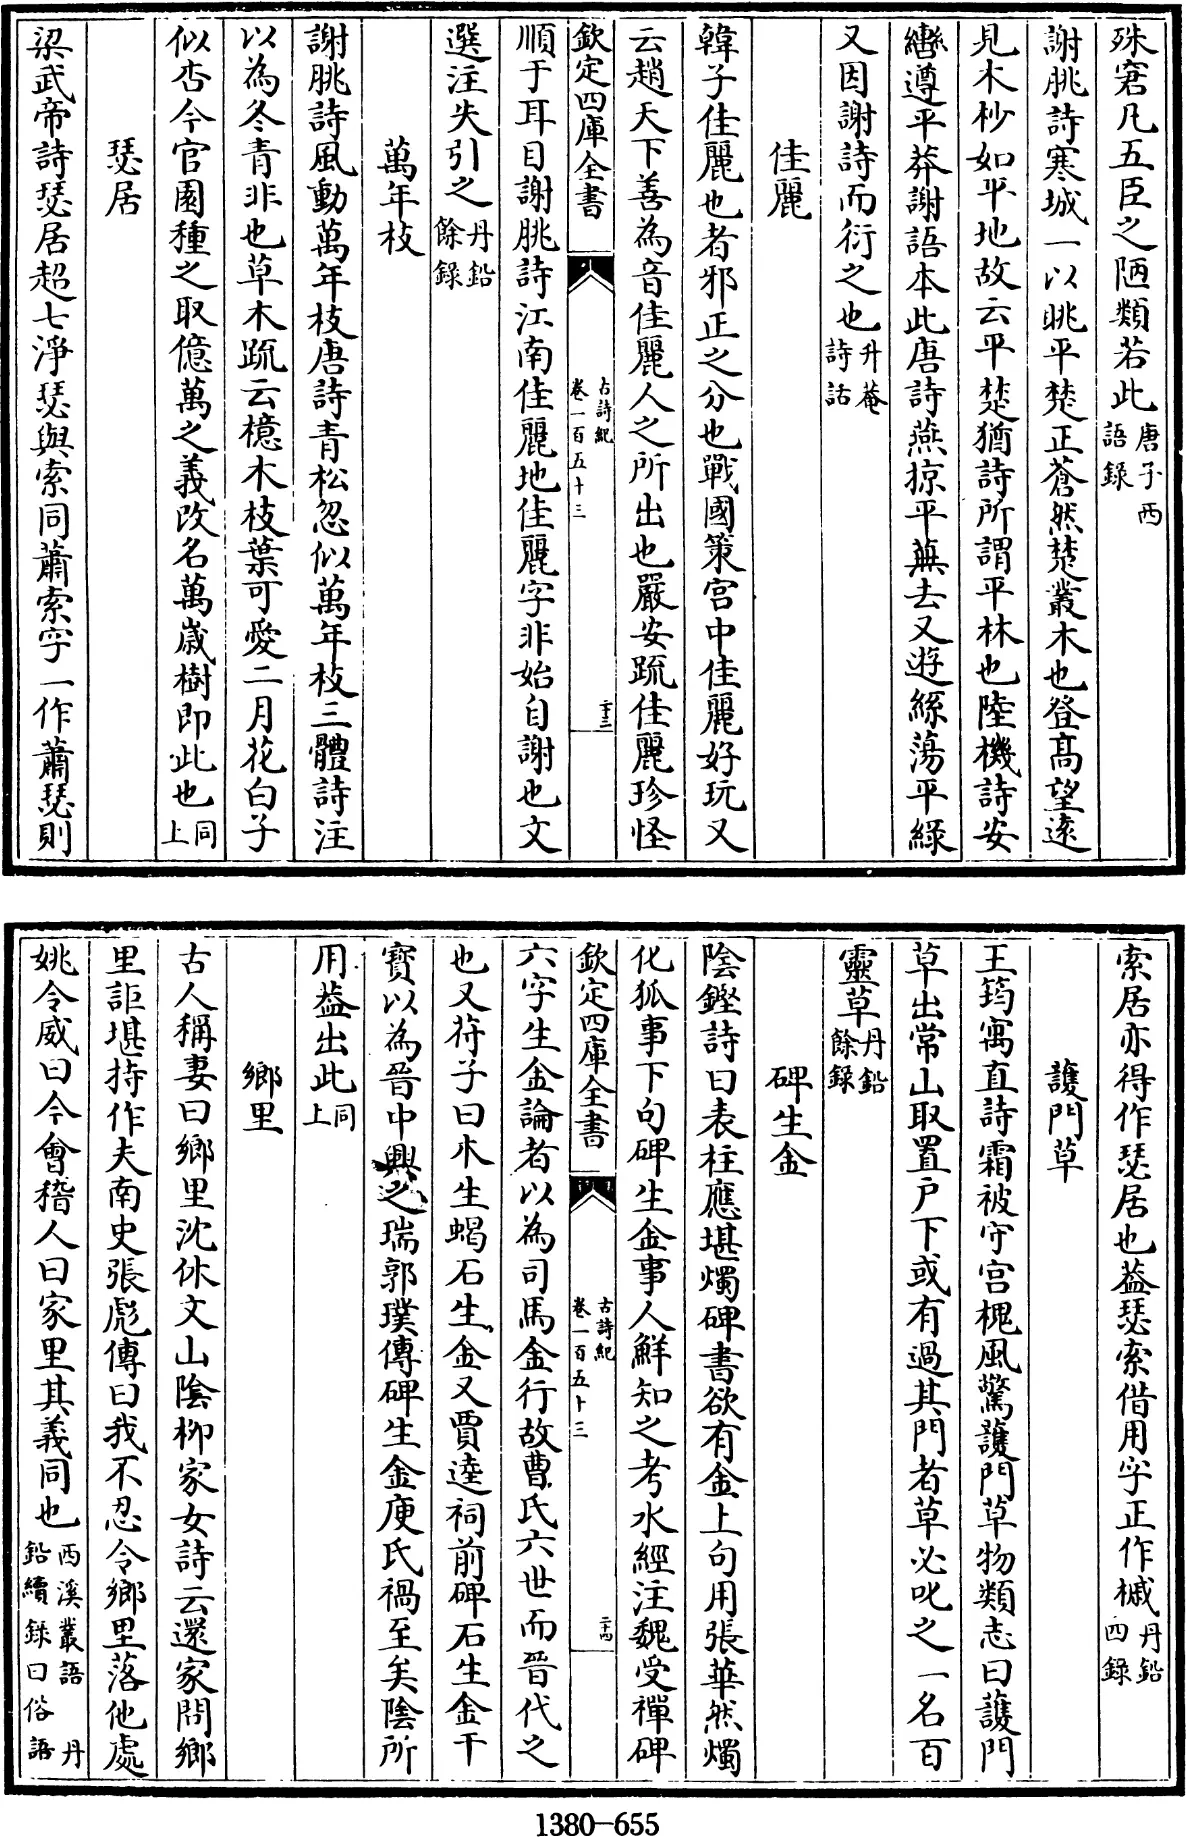 殊窘凡五臣之陋類若此唐子西語録
謝朓詩寒城一以眺平楚正蒼然楚叢木也登髙望遠
見木杪如平地故云平楚猶詩所謂平林也陸機詩安
轡遵平莽謝語本此唐詩燕掠平蕪去又遊絲蕩平緑
又因謝詩而衍之也升菴詩話
佳麗
韓子佳麗也者邪正之分也戰國策宫中佳麗好玩又
云趙天下善為音佳麗人之所出也嚴安疏佳麗珍怪
欽定四庫全書
古詩紀
卷一百五十三
二十三
順于耳目謝朓詩江南佳麗地佳麗字非始自謝也文
選注失引之丹鉛餘録
萬年枝
謝朓詩風動萬年枝唐詩青松忽似萬年枝三體詩注
以為冬青非也草木疏云檍木枝葉可愛二月花白子
似杏今官園種之取億萬之義改名萬歳樹即此也同上
瑟居
梁武帝詩瑟居超七淨瑟與索同蕭索字一作蕭瑟則
索居亦得作瑟居也葢瑟索借用字正作槭丹鉛四録
䕶門草
王筠寓直詩霜被守宫槐風驚䕶門草物類志曰䕶門
草出常山取置户下或有過其門者草必叱之一名百
靈草丹鉛餘録
碑生金
陰鏗詩曰表柱應堪燭碑書欲有金上句用張華然燭
化狐事下句碑生金事人鮮知之考水經注魏受禪碑
欽定四庫全書
古詩紀
卷一百五十三
二十四
六字生金論者以為司馬金行故曹氏六世而晉代之
也又苻子曰木生蝎石生金又賈逵祠前碑石生金干
寳以為晉中興之瑞郭璞傳碑生金庾氏禍至矣陰所
用葢出此同上
鄉里
古人稱妻曰鄉里沈休文山陰柳家女詩云還家問鄉
里詎堪持作夫南史張彪傳曰我不忍令鄉里落他處
姚令威曰今會稽人曰家里其義同也西溪叢語 丹鉛續録曰俗語
1380-655